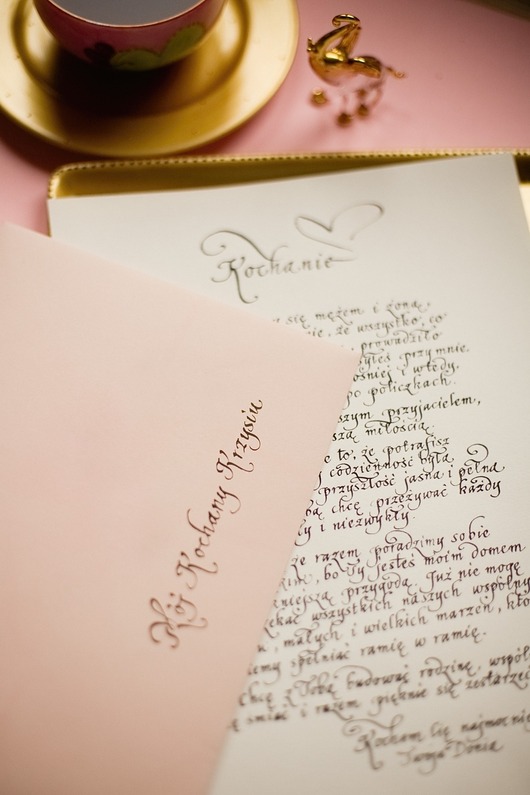 Kochanie
się mężem i żoną,
że wszystko, co
prowadziło
byłeś przy mnie.
głośniej i wtedy,
po policzkach.
szym przyjacielem,
szą miłością.
to, że potrafisz
codzienność była
przyszłość jasna i pełna
bą chcę przeżywać każdy
y i niezwykły.
że razem poradzimy sobie
bo Ty jesteś moim domem
niejszą przygodą. Już nie mogę
ekać wszystkich naszych wspólny
małych i wielkich marzeń, któ
emy spełniać ramię w ramię.
chcę z Tobą budować rodzinę, współ
śmiać i razem pięknie się zestarzeć
Kocham Cię najmocnie
Twoja Doria
Mój Kochany Krzysiu